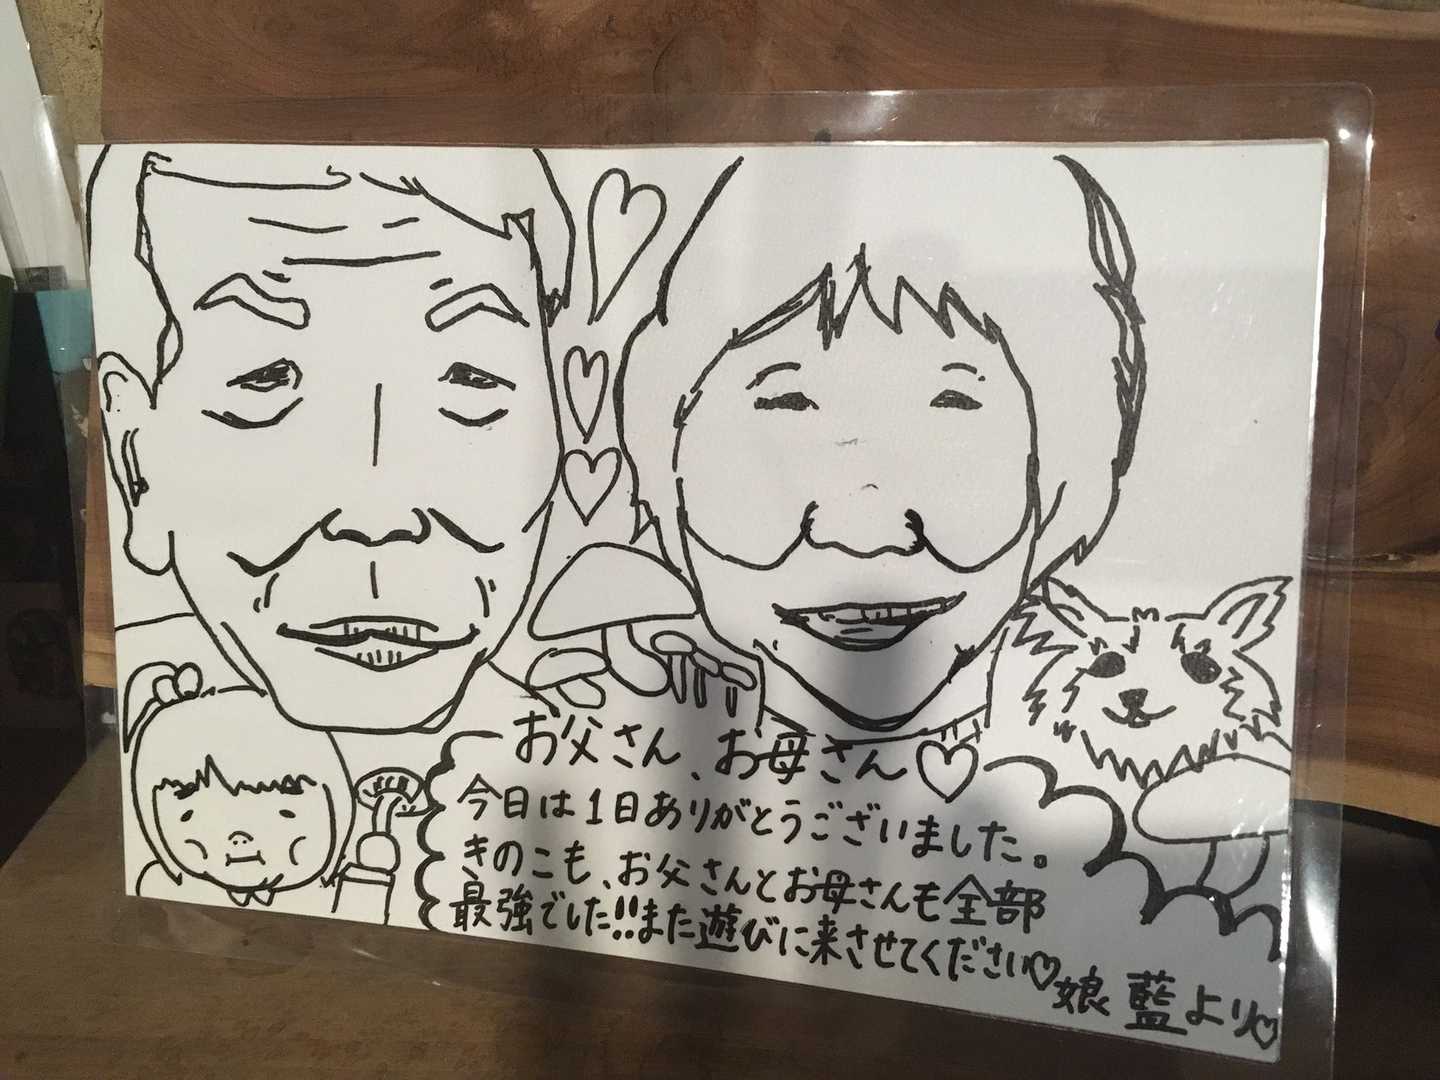 お父さん、お母さん♡
今日は1日ありがとうございました。
きのこも、お父さんとお母さんも全部
最強でした!!また遊びに来させてください♡
娘 藍より♡